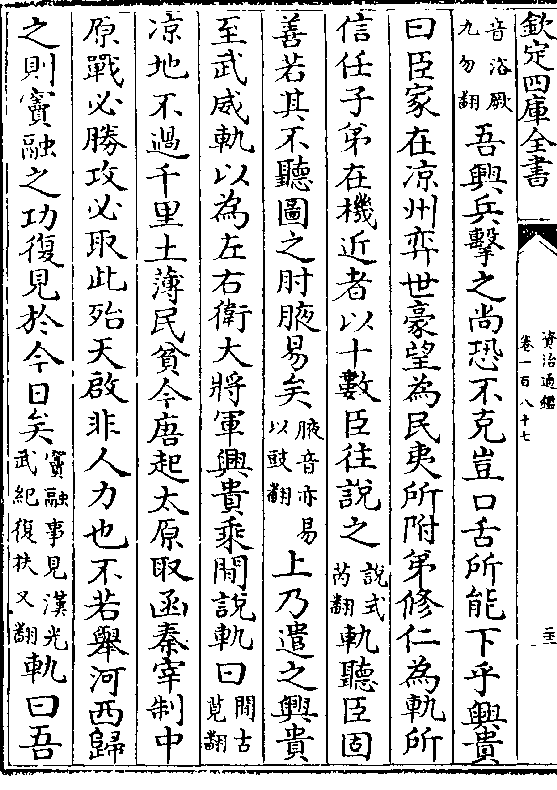 欽定四庫全書
資治通鑑
卷一百八十七
音洛厥
九勿翻
吾興兵擊之尚恐不克豈口舌所能下乎興貴
曰臣家在凉州弈世豪望為民夷所附弟修仁為軌所
信任子弟在機近者以十數臣往說之
說式
芮翻
軌聽臣固
善若其不聽圖之肘腋易矣
腋音亦易
以豉翻
上乃遣之興貴
至武威軌以為左右衛大將軍興貴乘間說軌曰
間古
莧翻
凉地不過千里土薄民貧今唐起太原取函秦宰制中
原戰必勝攻必取此殆天啟非人力也不若舉河西歸
之則竇融之功復見於今日矣
竇融事見漢光
武紀復扶又翻
軌曰吾